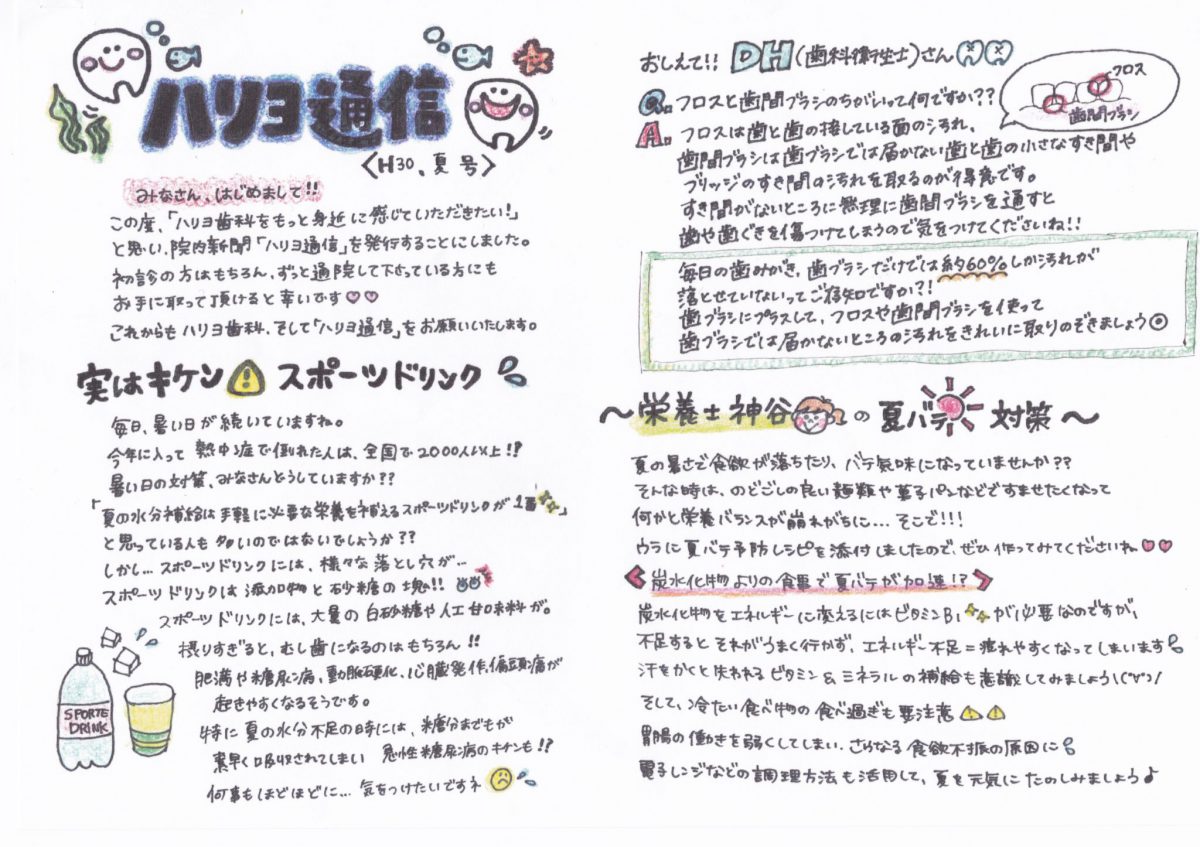 ハリヨ通信
〈H30、夏号〉
みなさん、はじめまして!!
この度、「ハリヨ歯科をもっと身近に感じていただきたい!」
と思い、院内新聞「ハリヨ通信」を発行することにしました。
初診の方はもちろん、ずっと通院して下さっている方にも
お手に取って頂けると幸いです♡♡
これからもハリヨ歯科、そして「ハリヨ通信」をお願いいたします。
実はキケン⚠スポーツドリンク
毎日、暑い日が続いていますね。
今年に入って熱中症で倒れた人は、全国で2000人以上!?
暑い日の対策、みなさんどうしていますか??
「夏の水分補給は手軽に必要な栄養を補えるスポーツドリンクが1番」
と思っている人も多いのではないでしょうか??
しかし…スポーツドリンクには、様々な落とし穴が…
スポーツドリンクは添加物と砂糖の塊!!
スポーツドリンクには、大量の白砂糖や人工甘味料が。
摂りすぎると、むし歯になるのはもちろん!!
肥満や糖尿病、動脈硬化、心臓発作、偏頭痛が
起きやすくなるそうです。
特に夏の水分不足の時には、糖分までもが
素早く吸収されてしまい 急性糖尿病のキケンも!?
何事もほどほどに…気をつけたいですネ
SPORTE
DRINK
おしえて!! DH(歯科衛生士)さん
Q. フロスと歯間ブラシのちがいって何ですか??
フロス
歯間ブラシ
A. フロスは歯と歯の接している面の汚れ、
歯間ブラシは歯ブラシでは届かない歯と歯の小さなすき間や
ブリッジのすき間の汚れを取るのが得意です。
すき間がないところに無理に歯間ブラシを通すと
歯や歯ぐきを傷つけてしまうので気をつけてくださいね!!
毎日の歯みがき、歯ブラシだけでは約60%しか汚れが
落とせていないってご存知ですか?!
歯ブラシにプラスして、フロスや歯間ブラシを使って
歯ブラシでは届かないところの汚れをきれいに取りのぞきましょう◎
～栄養士神谷の夏バテ対策～
夏の暑さで食欲が落ちたり、バテ気味になっていませんか??
そんな時は、のどごしの良い麺類や菓子パンなどですませたくなって
何かと栄養バランスが崩れがちに…そこで!!!
ウラに夏バテ予防レシピを添付しましたので、ぜひ作ってみてくださいね♡♡
〈炭水化物よりの食事で夏バテが加速!?〉
炭水化物をエネルギーに変えるにはビタミンB1が必要なのですが、
不足するとそれがうまく行かず、エネルギー不足=疲れやすくなってしまいます
汗をかくと失われるビタミン&ミネラルの補給も意識してみましょう\(^∀^)/
そして、冷たい食べ物の食べ過ぎも要注意⚠⚠
胃腸の働きを弱くしてしまい、さらなる食欲不振の原因に
電子レンジなどの調理方法も活用して、夏を元気にたのしみましょう♪